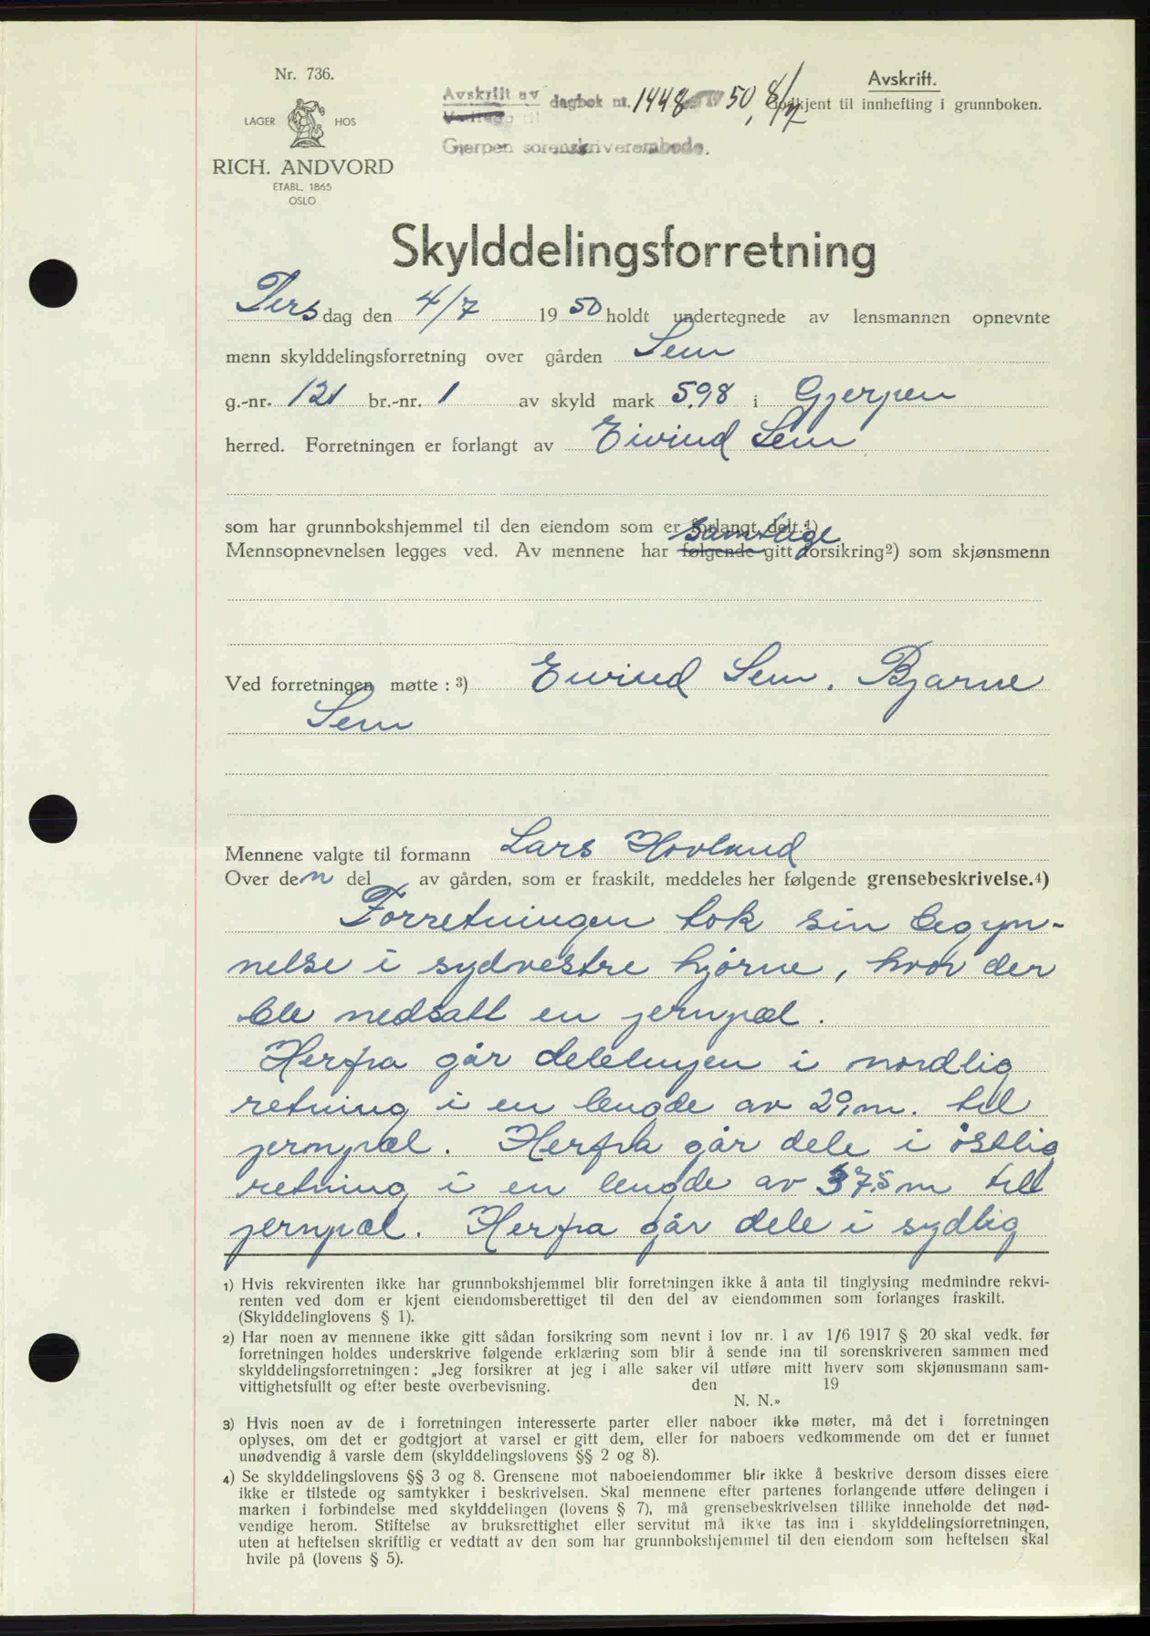 Nr. 736.
LAGER HOS
RICH. ANDVORD
ETABL. 1865
OSLO
Avskrift av dagbok nr. 1448 50, 8/7
Gjerpen sorenskriverembede.
Avskrift.
Godkjent til innhefting i grunnboken.
Skylddelingsforretning
Tirsdag den 4/7 1950 holdt undertegnede av lensmannen opnevnte
menn skylddelingsforretning over gården Sem
g.-nr. 121 br.-nr. 1 av skyld mark 5.98 i Gjerpen
herred. Forretningen er forlangt av Eivind Sem
som har grunnbokshjemmel til den eiendom som er forlangt delt.1)
Mennsopnevnelsen legges ved. Av mennene har følgende samtlige gitt forsikring2) som skjønsmenn
Ved forretningen møtte : 3) Eivind Sem. Bjarne
Sem
Mennene valgte til formann Lars Hovland
Over den del av gården, som er fraskilt, meddeles her følgende grensebeskrivelse.4)
Forretningen tok sin begyn-
nelse i sydvestre hjørne, hvor der
ble nedsatt en jernpæl.
Herfra går delelinjen i nordlig
retning i en lengde av 29,m. til
jernpæl. Herfra går dele i østlig
retning i en lengde av 37,5 m til
jernpæl. Herfra går dele i sydlig
1) Hvis rekvirenten ikke har grunnbokshjemmel blir forretningen ikke å anta til tinglysing medmindre rekvi-
renten ved dom er kjent eiendomsberettiget til den del av eiendommen som forlanges fraskilt.
(Skylddelinglovens § 1).
2) Har noen av mennene ikke gitt sådan forsikring som nevnt i lov nr. 1 av 1/6 1917 § 20 skal vedk. før
forretningen holdes underskrive følgende erklæring som blir å sende inn til sorenskriveren sammen med
skylddelingsforretningen: „Jeg forsikrer at jeg i alle saker vil utføre mitt hverv som skjønnsmann sam-
vittighetsfullt og efter beste overbevisning. den 19
N. N.»
3) Hvis noen av de i forretningen interesserte parter eller naboer ikke møter, må det i forretningen
oplyses, om det er godtgjort at varsel er gitt dem, eller for naboers vedkommende om det er funnet
unødvendig å varsle dem (skylddelingslovens §§ 2 og 8).
4) Se skylddelingslovens §§ 3 og 8. Grensene mot naboeiendommer blir ikke å beskrive dersom disses eiere
ikke er tilstede og samtykker i beskrivelsen. Skal mennene efter partenes forlangende utføre delingen i
marken i forbindelse med skylddelingen (lovens § 7), må grensebeskrivelsen tillike inneholde det nød-
vendige herom. Stiftelse av bruksrettighet eller servitut må ikke tas inn i skylddelingsforretningen,
uten at heftelsen skriftlig er vedtatt av den som har grunnbokshjemmel til den eiendom som heftelsen skal
hvile på (lovens § 5).